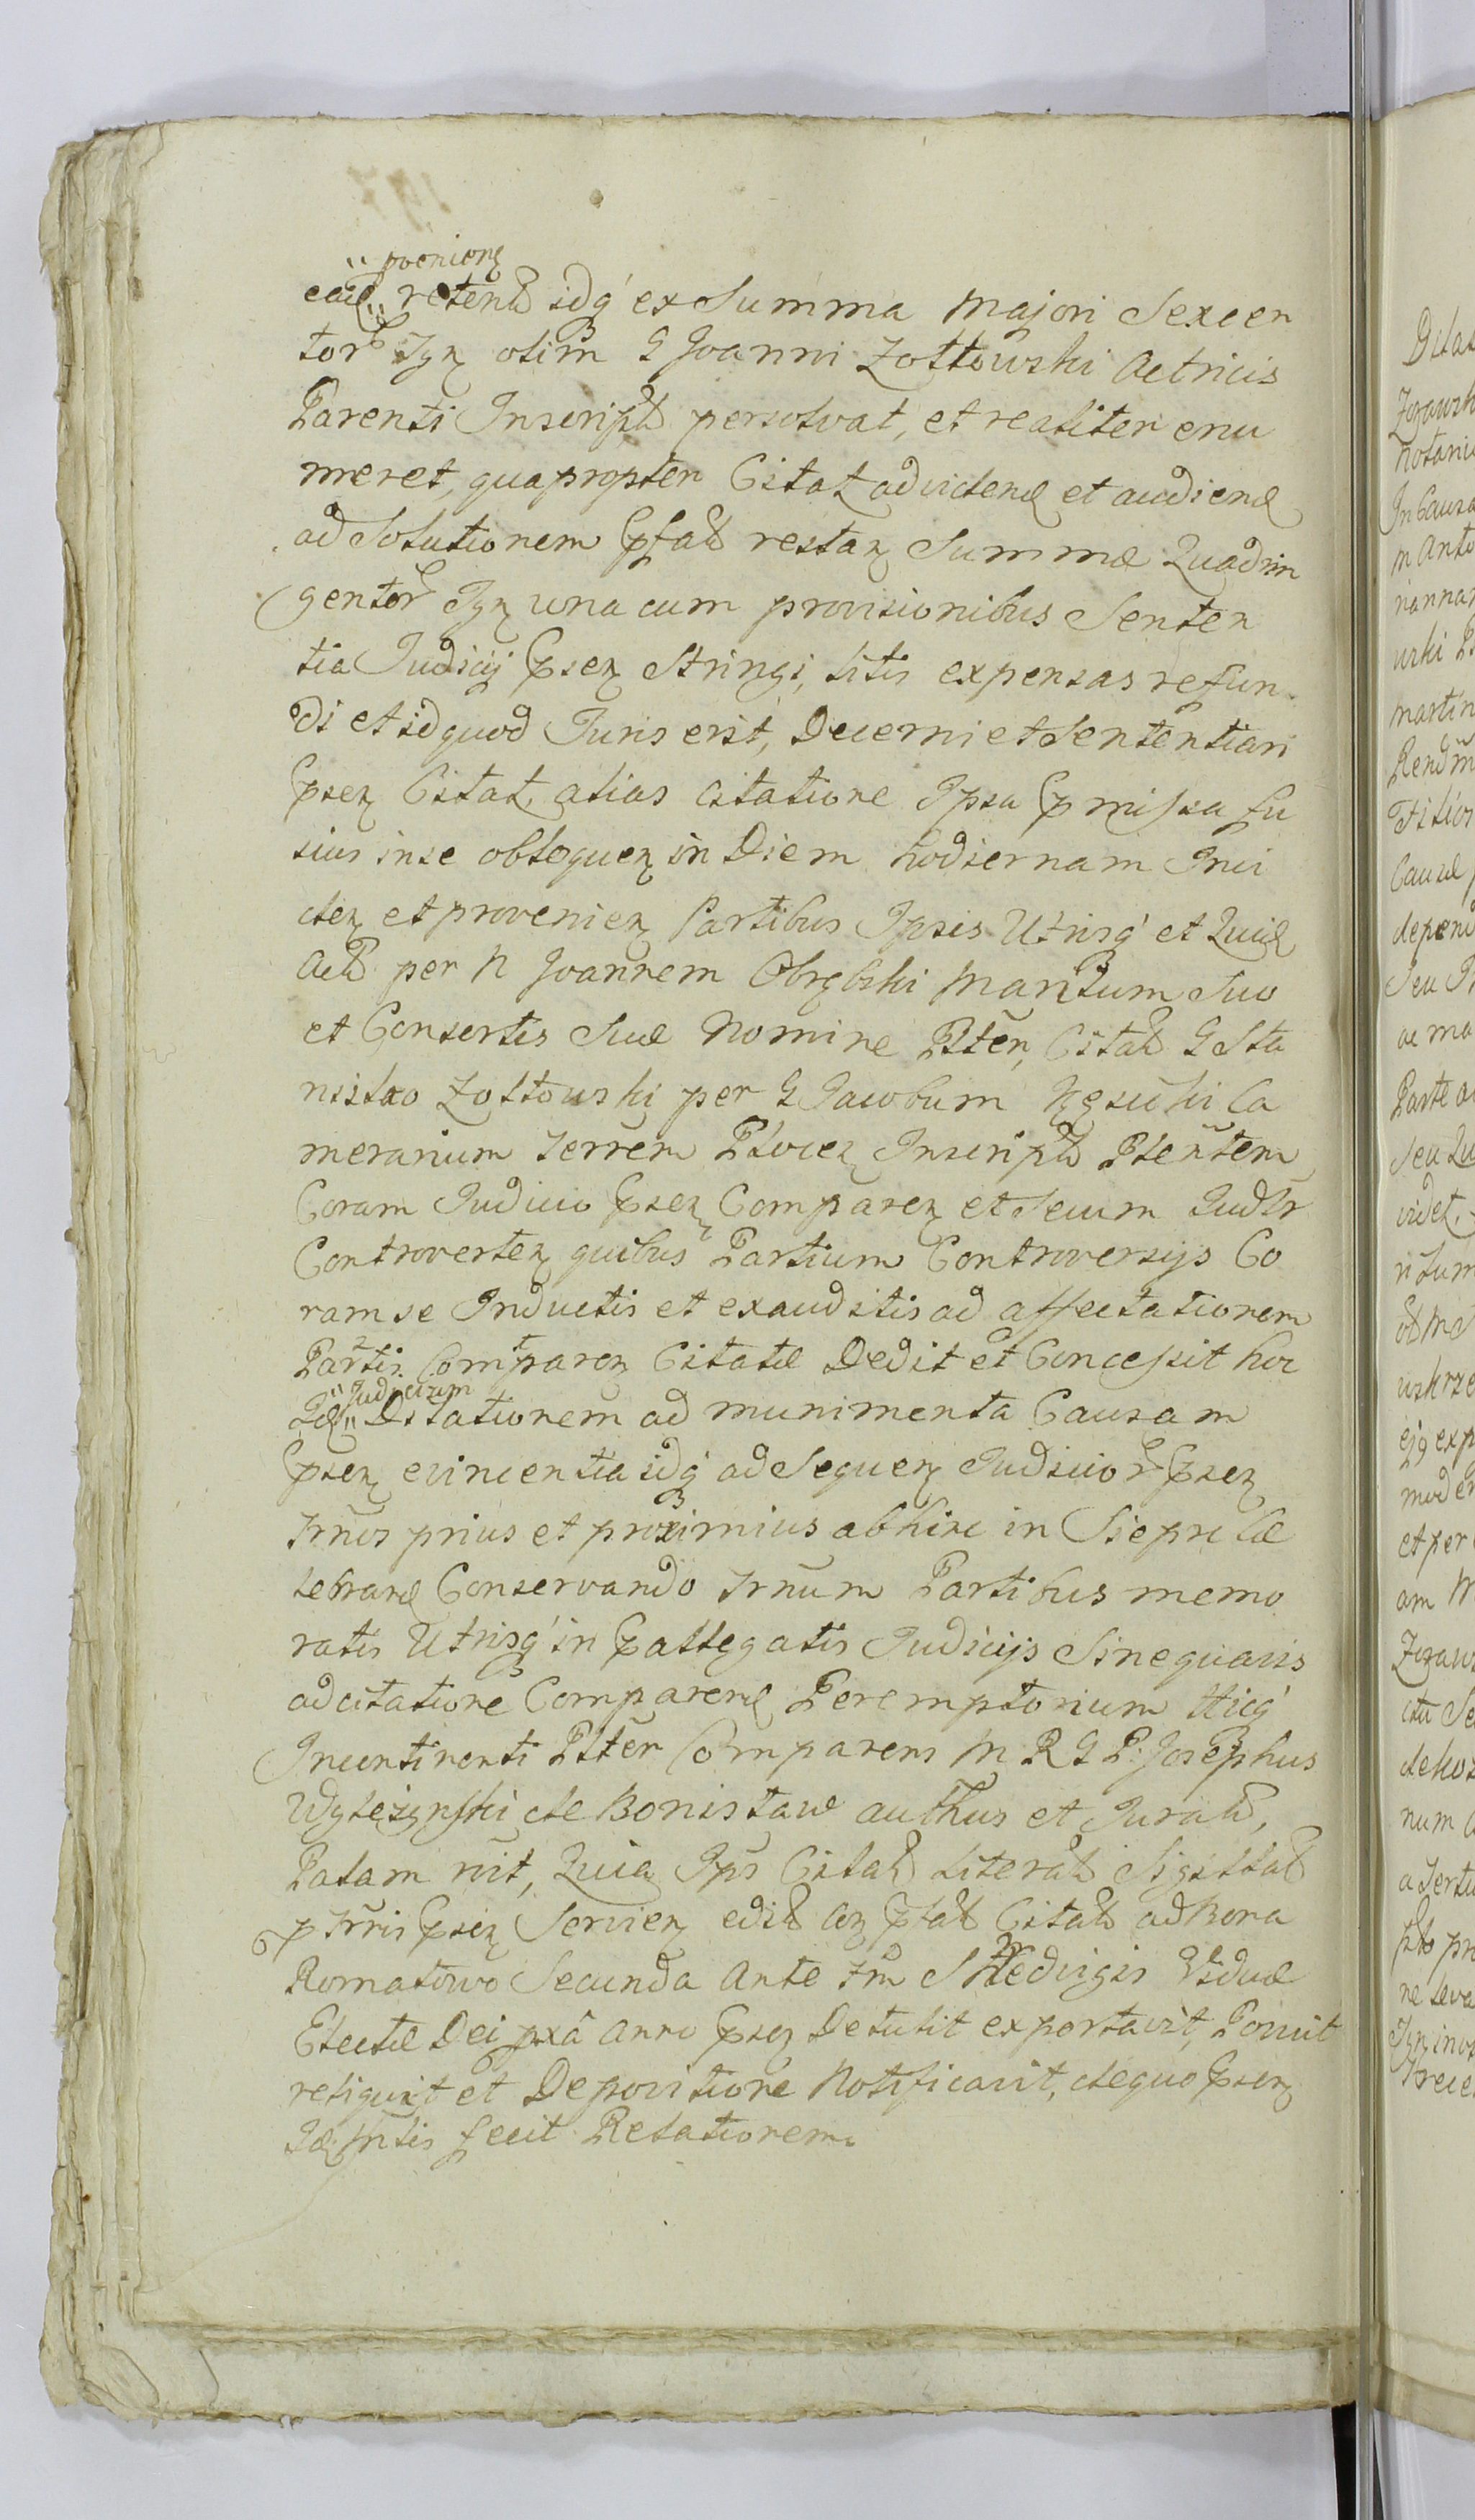 provenien
ead retent idq ex Summa Majori Sexcen
tor Fgn olim G Joanni Zołtowski Actricis
Parenti Inscript persolvat, et realiter enu
meret, quapropter Citat ad vidend et audiend
ad Solutionem Pfat restan Summæ Quadrin
gentor Fgn una cum provisionibus Senten
tia Judicij Psen Stringi, litis expensas refun
di et id quod Juris erit, Decerni et Sententiari
Psen Citat, alias citatione Ipsa Pmissa fu
sius in se obloquen in Diem hodiernam Inci
den et provenien Partibus Ipsis Utrisq et Quid
Act per N Joannem Obrębski Maritum Suo
et Consortis Suæ Nomine Pltēr, Citat G Sta
nislao Zołtowski per G Jacobum Ca
merarium Terrem Plocen Inscript Plēntem
Coram Judicio Psen Comparen et Secum Judlr
Controverten quibus Partium Controversijs Co
ram se Inductis et exauditis ad affectationem
Partis Comparen Citatæ Dedit et Concessit hoc
Judicium
Id Dilationem ad munimenta Causam
Psen evincentia idq ad Sequen Judicior Psen
Trnos prius et proximius abhinc in Sieprc Cæ
lebrand Conservando Trnum Partibus memo
ratis Utrisq in Pallegatis Judicijs Sine quavis
adcitatione Comparend Peremptorium Hicq
Incontinenti Pltēr Comparens M R G P. Josephus
de Bonisław authus et Jurat,
Palam rit, Quia Ips Citat Literat Sigillat
p Trris Psen Servien edit Con Pfat Citat ad Bona
Romatowo Secunda Ante Fm S Hedvigis Viduæ
Electæ Dei pxâ anno Psen Detulit exportavit, Posuit
reliquit et De positione Notificavit, de quo Psen
Id fecit Relationem.